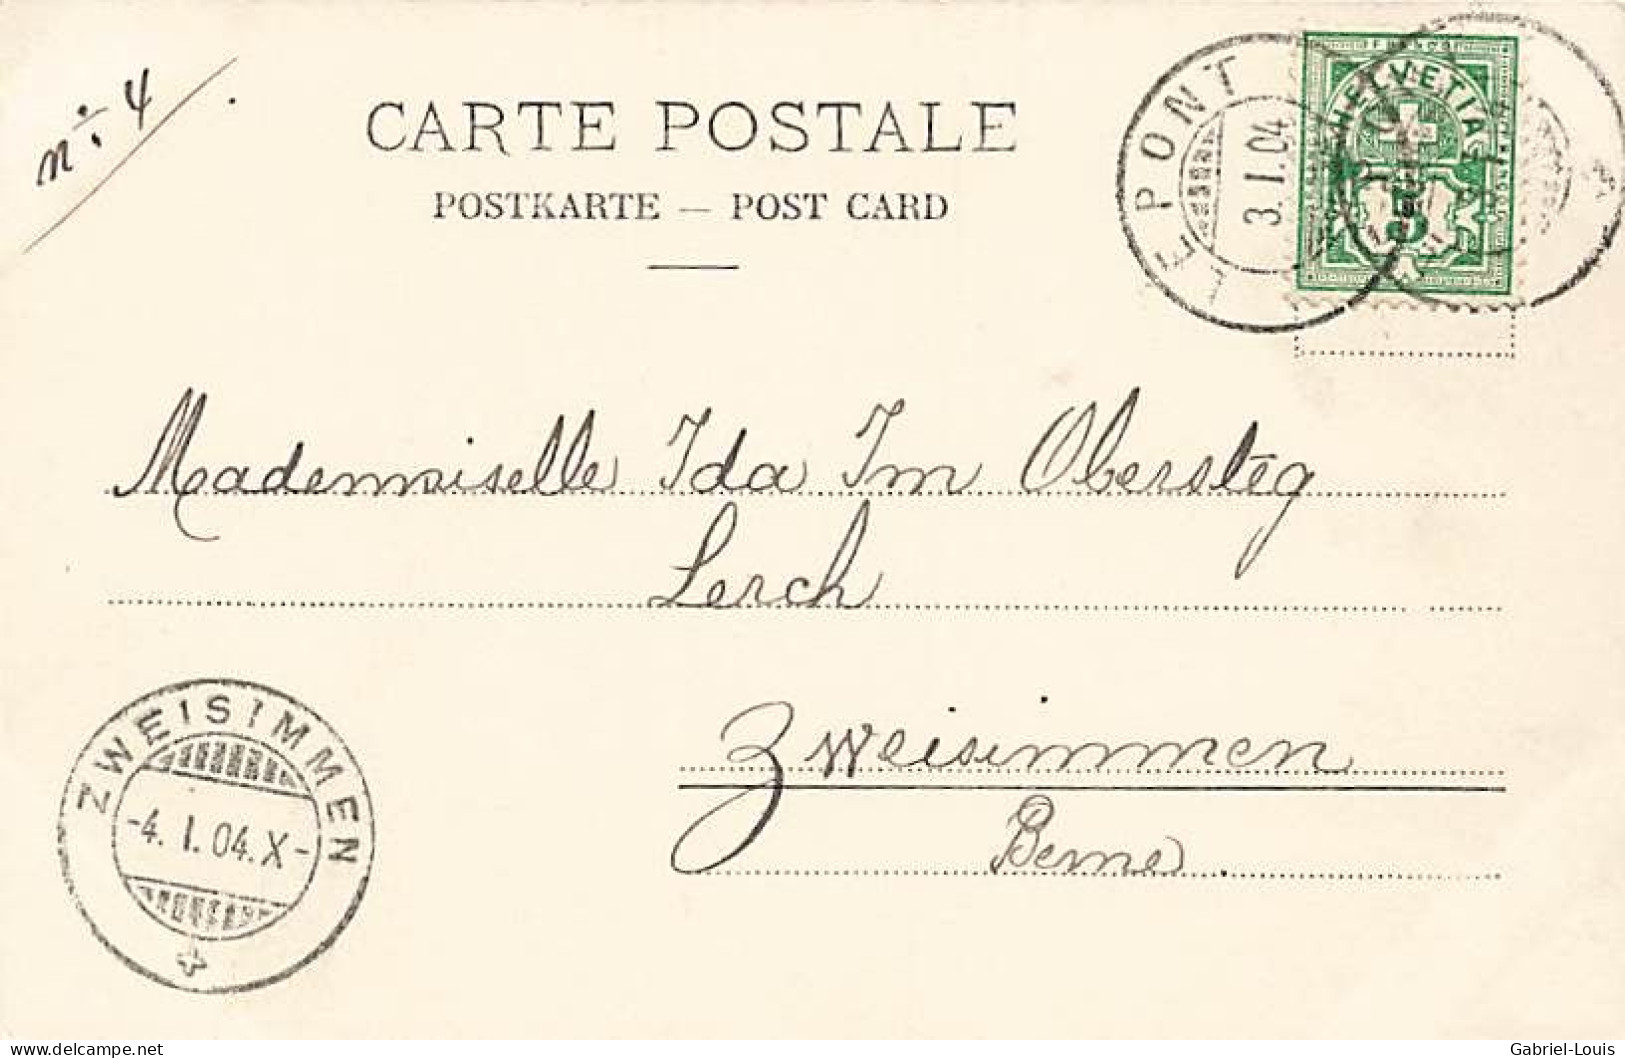 n: 4
CARTE POSTALE
POSTKARTE — POST CARD
LE PONT
3.I.04
FRANCO
HELVETIA
5
Mademoiselle Ida Im Obersteg
Lerch
Zweisimmen
Berne.
ZWEISIMMEN
-4.I.04.X-
www.delcampe.net
Gabriel-Louis